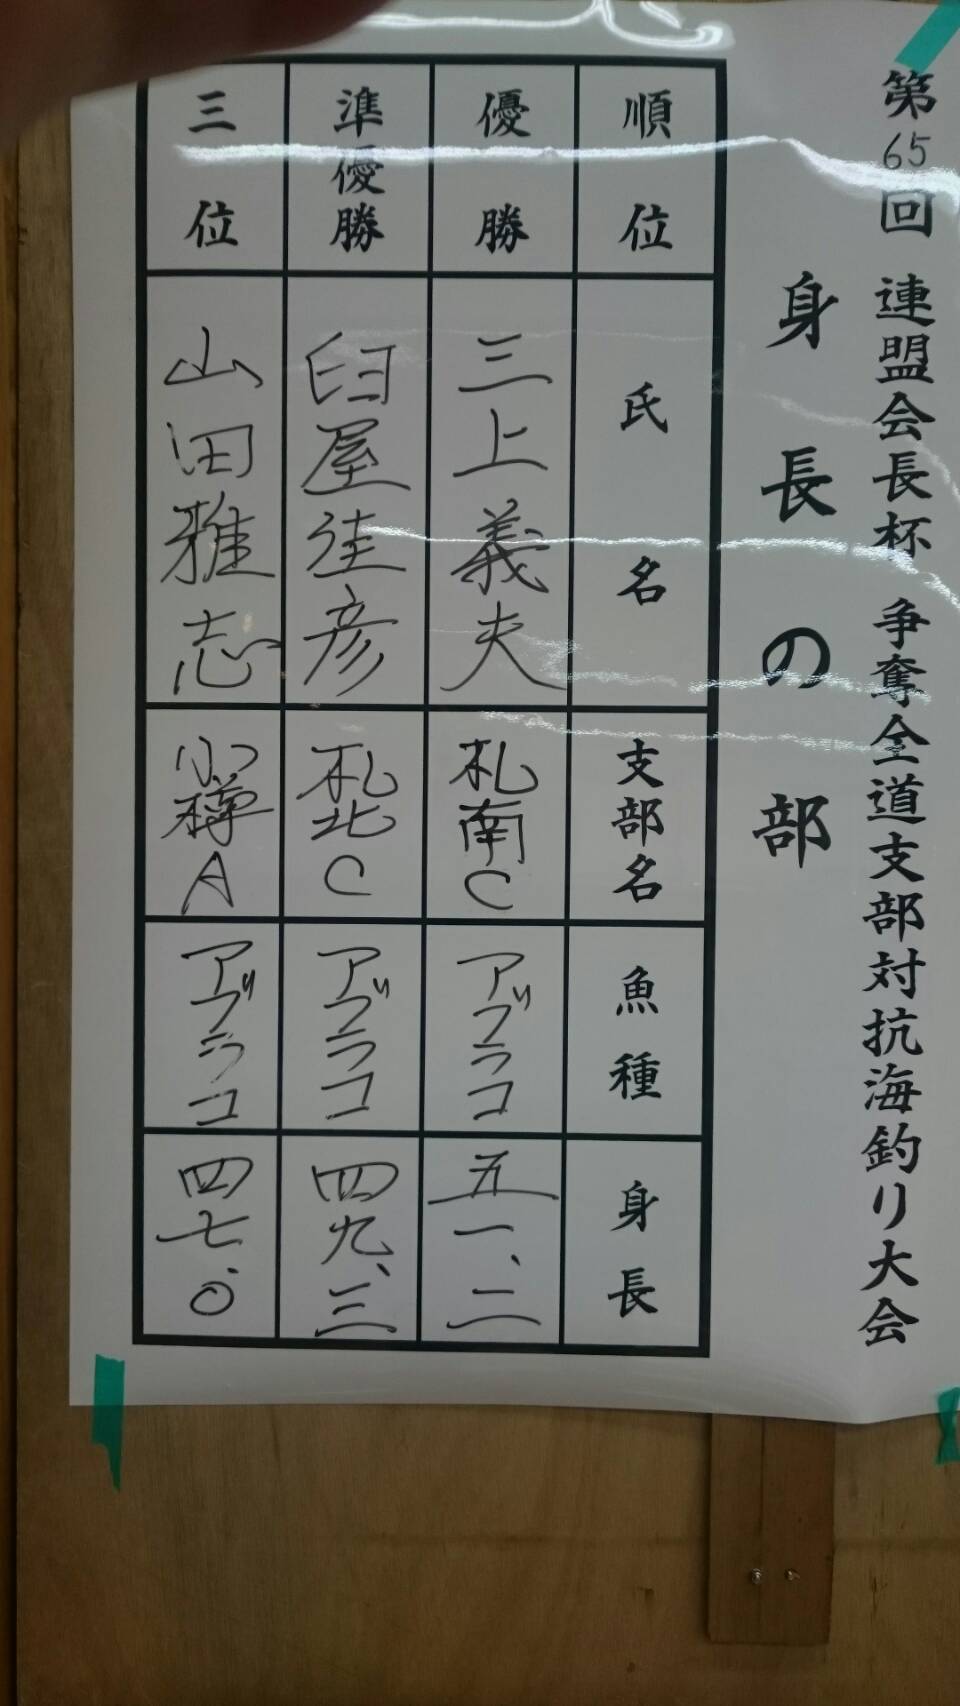 第65回 連盟会長杯 争奪全道支部対抗海釣り大会
身長の部
順位 氏名 支部名 魚種 身長
優勝 三上義夫 札南C アブラコ 五一、二
準優勝 臼屋彦 札北C アブラコ 四九、三
三位 山田雅志 小樽A アブラコ 四七、〇